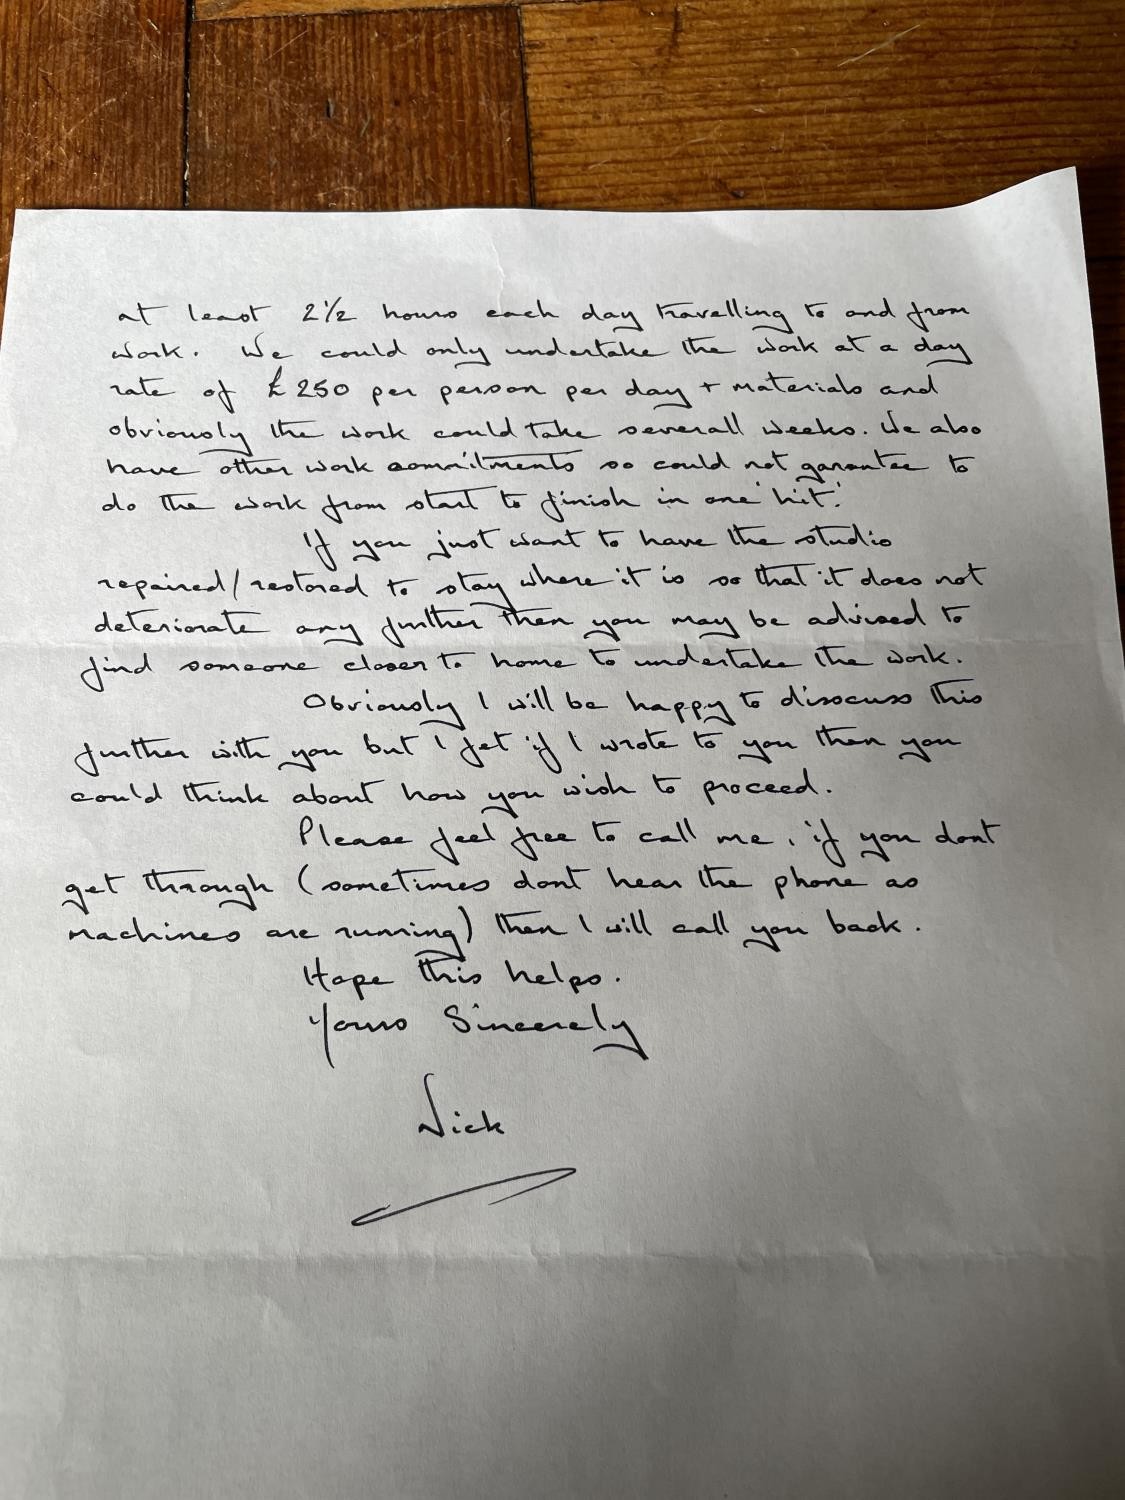 at least 2½ hours each day travelling to and from
work. We could only undertake the work at a day
rate of £250 per person per day + materials and
obviously the work could take severall weeks. We also
have other work commitments so could not garantee to
do the work from start to finish in one 'hit'.
If you just want to have the studio
repaired/restored to stay where it is so that it does not
deteriorate any further then you may be advised to
find someone closer to home to undertake the work.
Obviously I will be happy to disscuss this
further with you but I felt if I wrote to you then you
could think about how you wish to proceed.
Please feel free to call me, if you dont
get through (sometimes dont hear the phone as
machines are running) then I will call you back.
Hope this helps.
Yours Sincerely
Nick